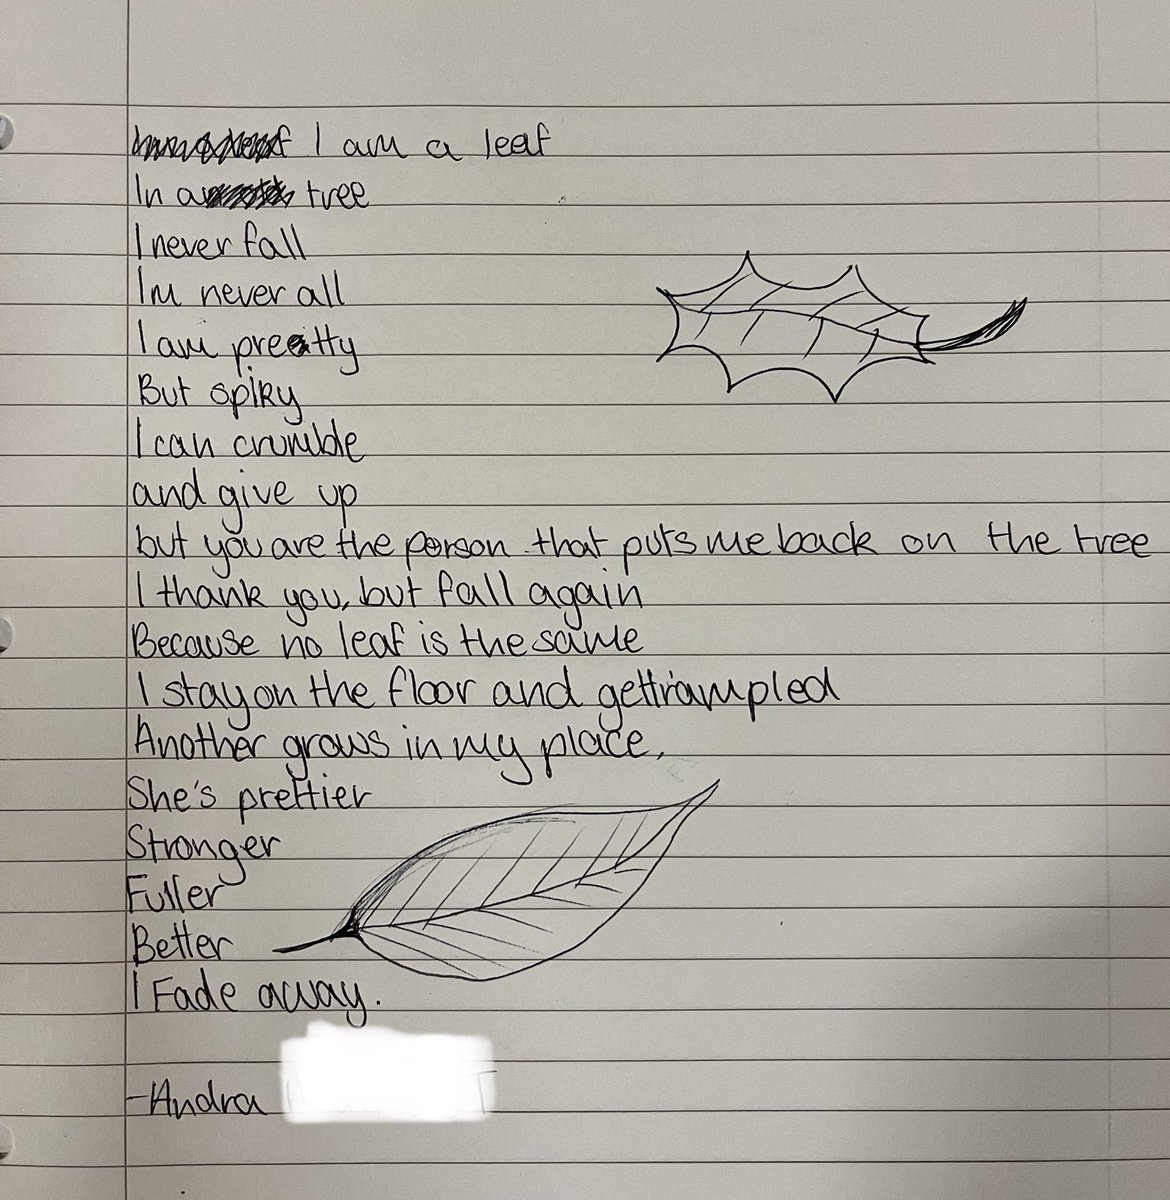 I am a leaf
In a tree
I never fall
Im never all
I am preetty
But spiky
I can crumble
and give up
but you are the person that puts me back on the tree
I thank you, but fall again
Because no leaf is the same
I stay on the floor and get trampled
Another grows in my place,
She's prettier
Stronger
Fuller
Better
I Fade away.
-Andra